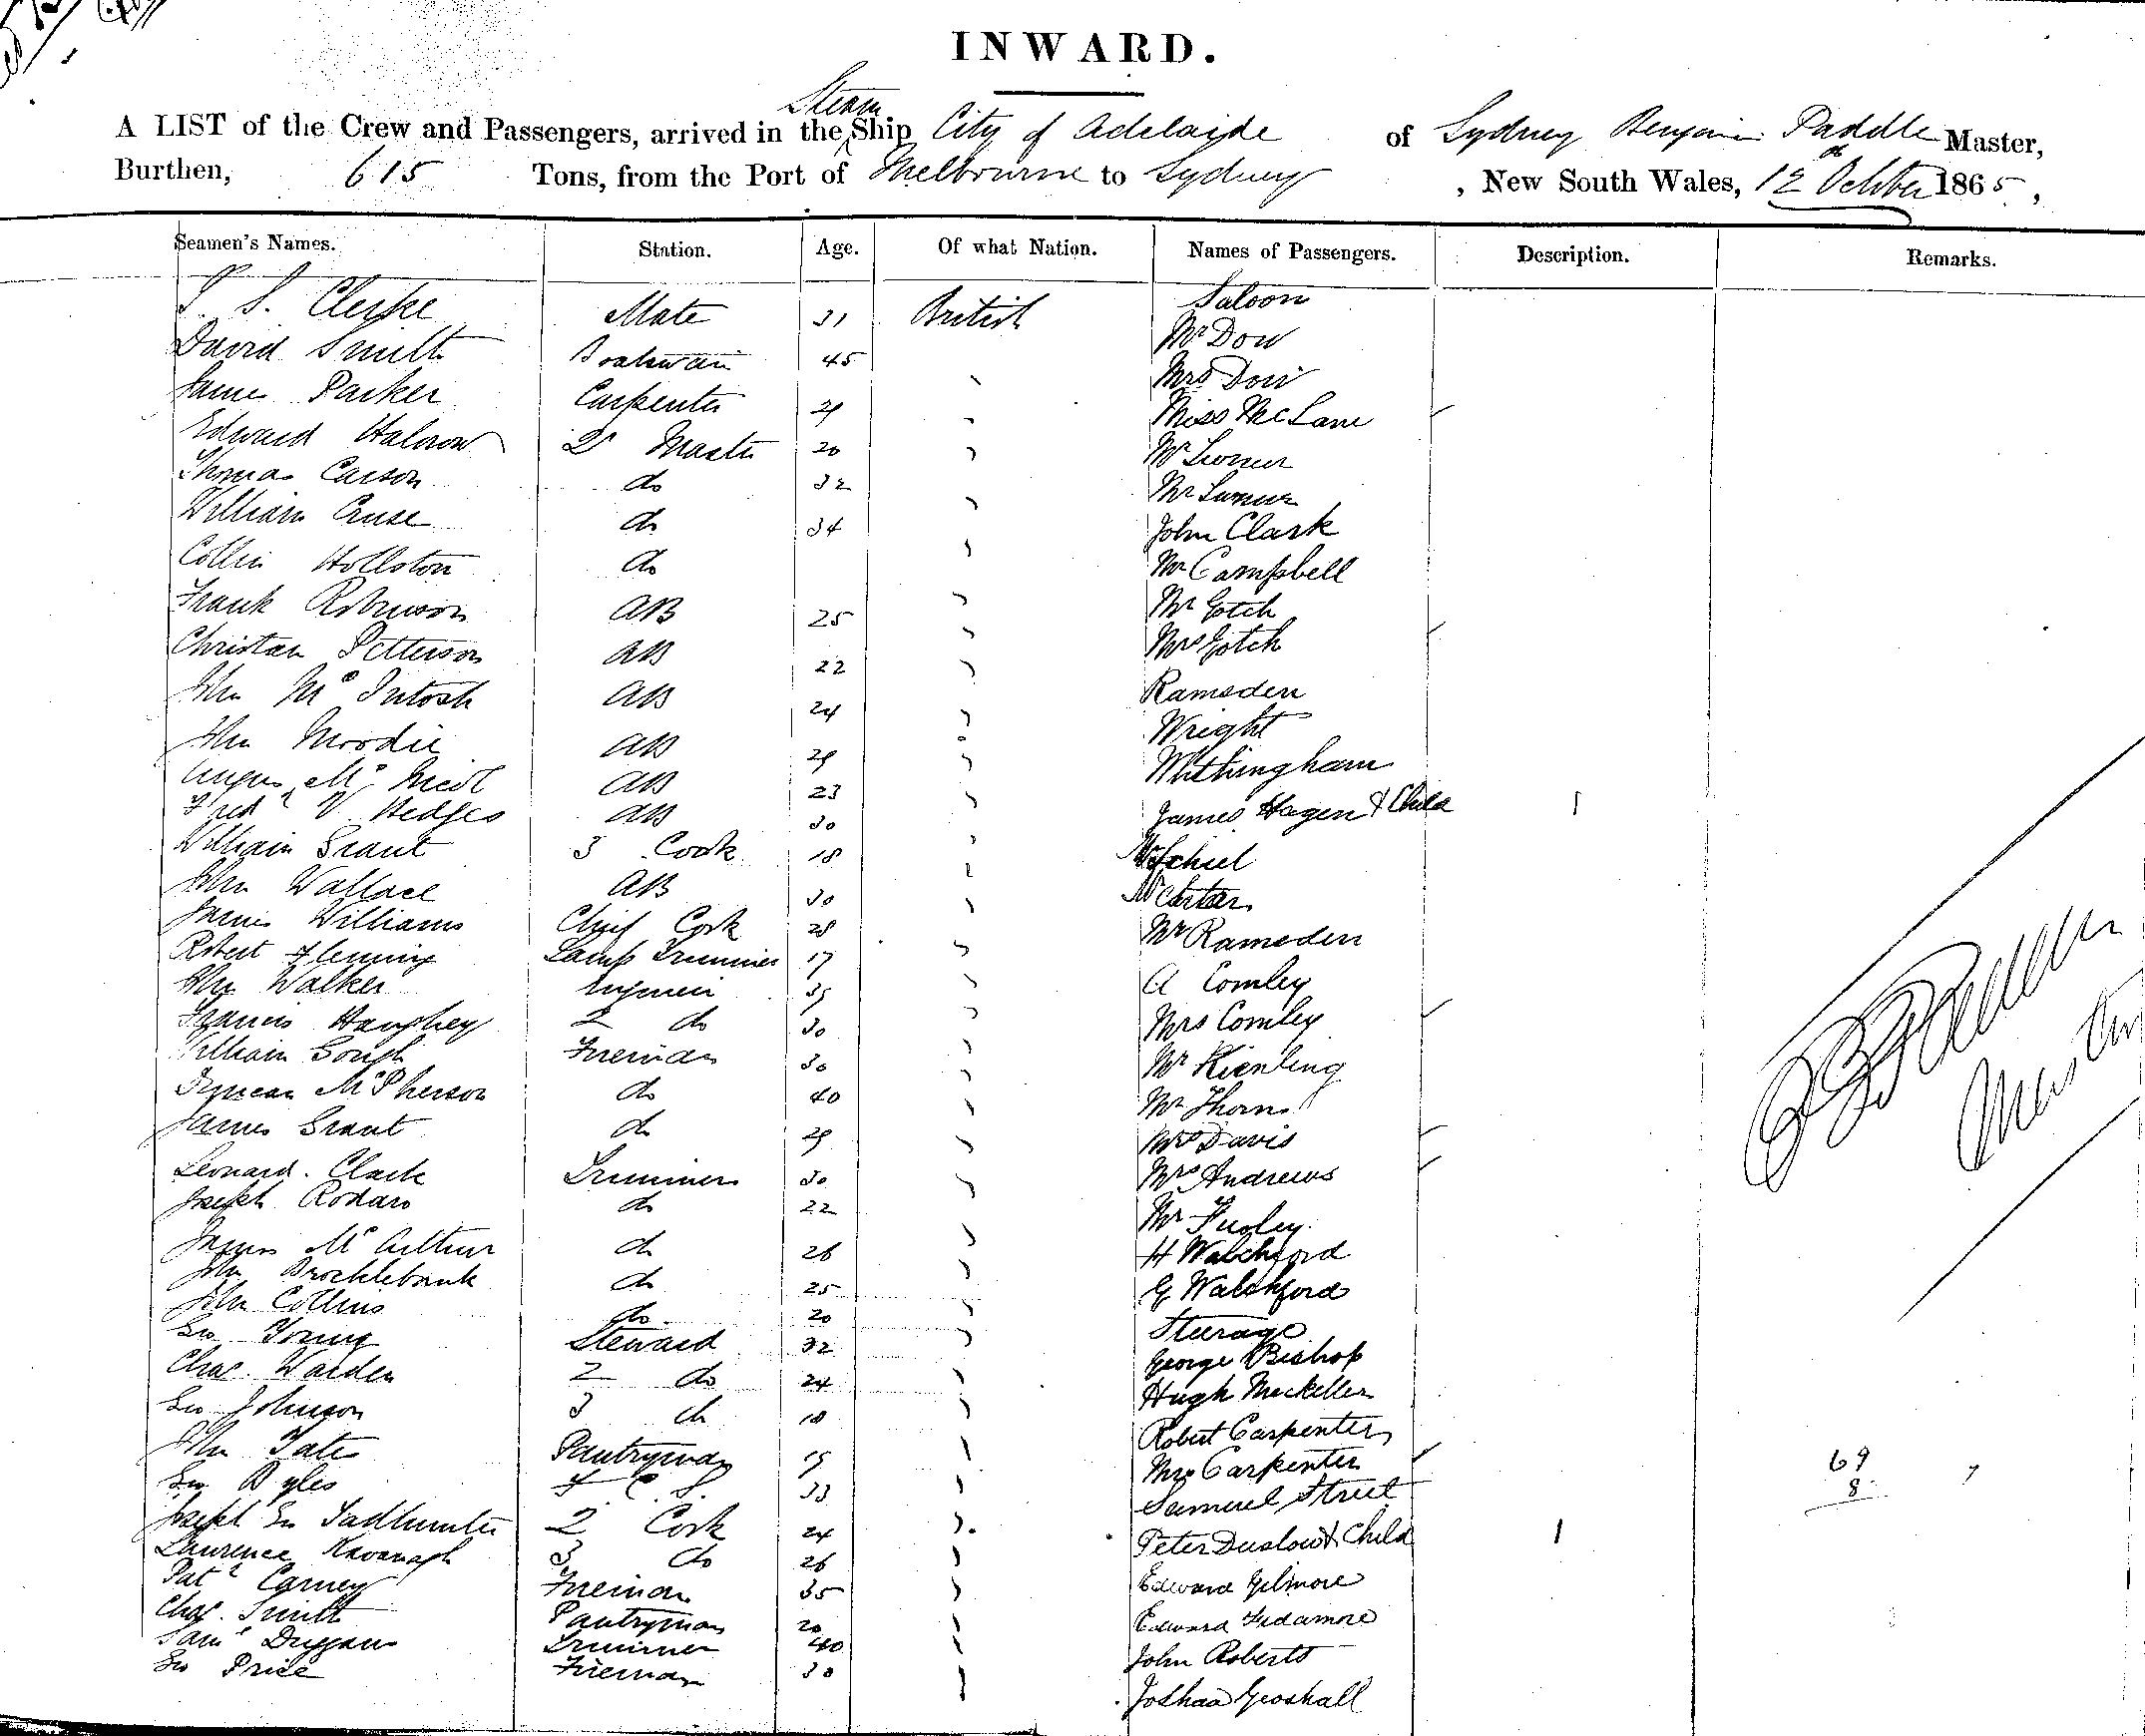 INWARD.
A LIST of the Crew and Passengers, arrived in the Steam Ship City of Adelaide of Sydney Benjamin Paddle Master,
Burthen, 615 Tons, from the Port of Melbourne to Sydney, New South Wales, 12 October 1865,
Seamen's Names. Station. Age. Of what Nation. Names of Passengers. Description. Remarks.
S. Clerke Mate 31 British Saloon
David Smith Boatswain 45 Mr Dow
James Parker Carpenter 29 Mrs Dow
Edward Halcrow 2r Master 20 Miss McLane
Thomas Carson do 32 Mr
William Cruse do 34 Mr
Collin Hollston do John Clark
Frank Robinson AB 25 Mr Campbell
Christian Petterson AB 22 Mr Gotch
John McIntosh AB 24 Mrs Gotch
John Moodie AB 29 Ramsden
Angus Mc AB 23 Wright
Fredk V Hedges AB 30 Withingham
William Grant 3 Cook 18 James Hagen & Child 1
John Wallace AB 30
James Williams Chief Cook 28 Mr Carter
Robert Fleming Lamp Trimmer 17 Mr Ramsden
John Walker Engineer 35 A Comley
Francis Haughey 2 do 30 Mrs Comley
William Gough Fireman 30 Mr Kienling
Duncan McPherson do 40 Mr Thorn
James Grant do 29 Mrs Davis
Leonard Clark Trimmer 30 Mrs Andrews
Joseph Rodaro do 22 Mr
James McArthur do 26 H Walchford
John Brocklebank do 25 G Walchford
John Collins do 20 Steerage
Geo Young Steward 32 George Bishop
Chas. Warden 2 do 24 Hugh Mckellen
Geo Johnson 3 do 18 Robert Carpenter
John Tate Pantryman 19 Mrs Carpenter 69 7
Geo Byles F. C. S. 33 Samuel Street 8
Joseph Geo 2 Cook 24 Peter Duslow & Child 1
Laurence Kavanagh 3 do 26 Edward Gilmore
Patk Carney Fireman 35 Edward
Chas. Smith Pantryman 20 John Roberts
Saml Duggan Trimmer 40 Joshua Groshall
Geo Price Fireman 30